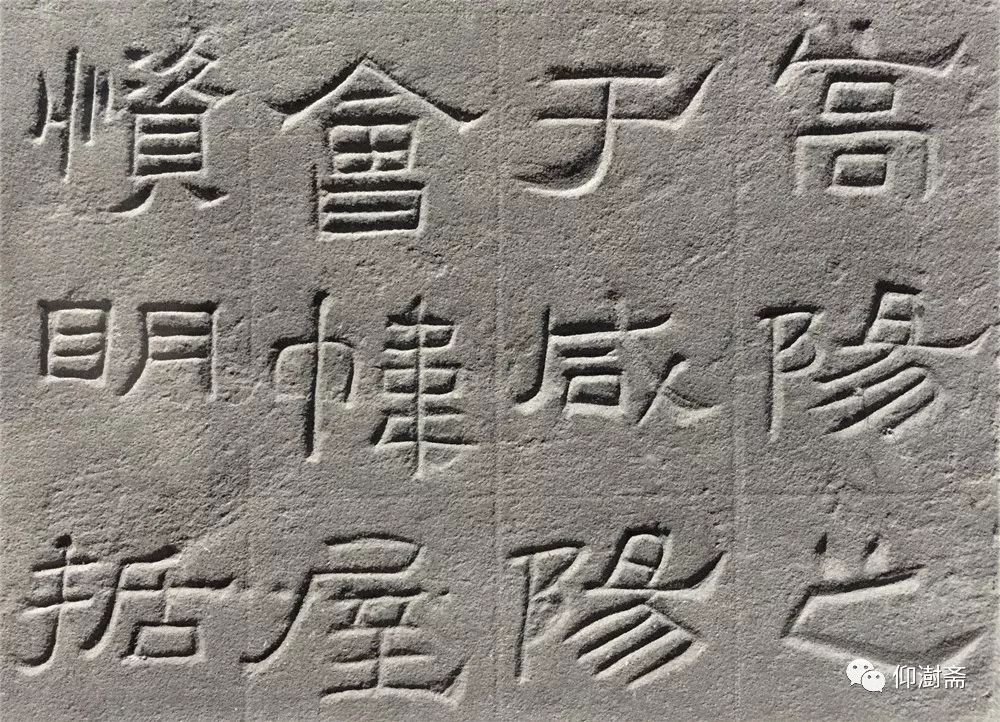 嵩陽之
于咸陽
會幃屋
明
仰澍斋